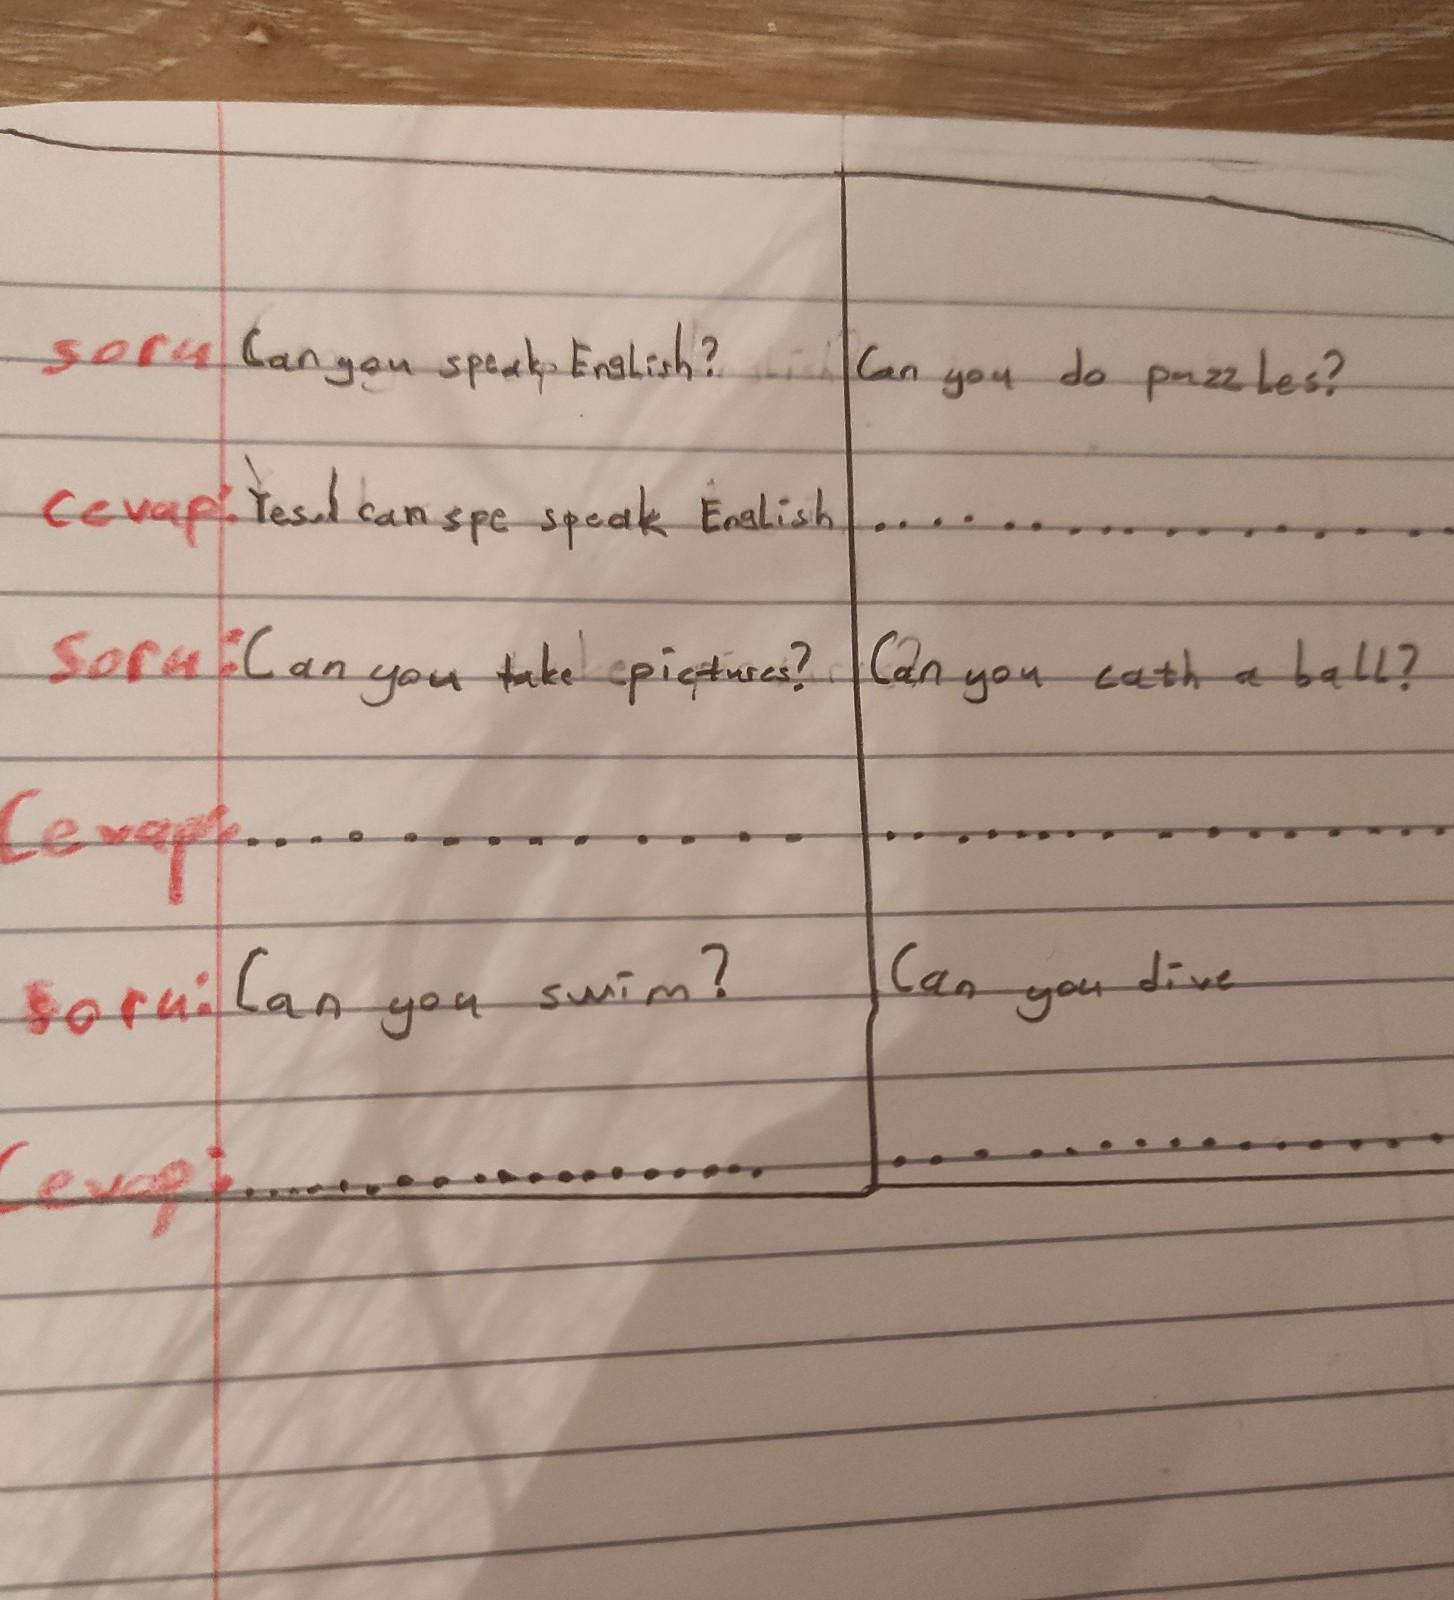 soru Can you speak English? Can you do puzzles?
cevap: Yes.I can spe speak English ..................
Soru: Can you take pictures? Can you cath a ball?
Cevap: .................. ..................
soru: Can you swim? Can you dive
Cevap: .................. ..................